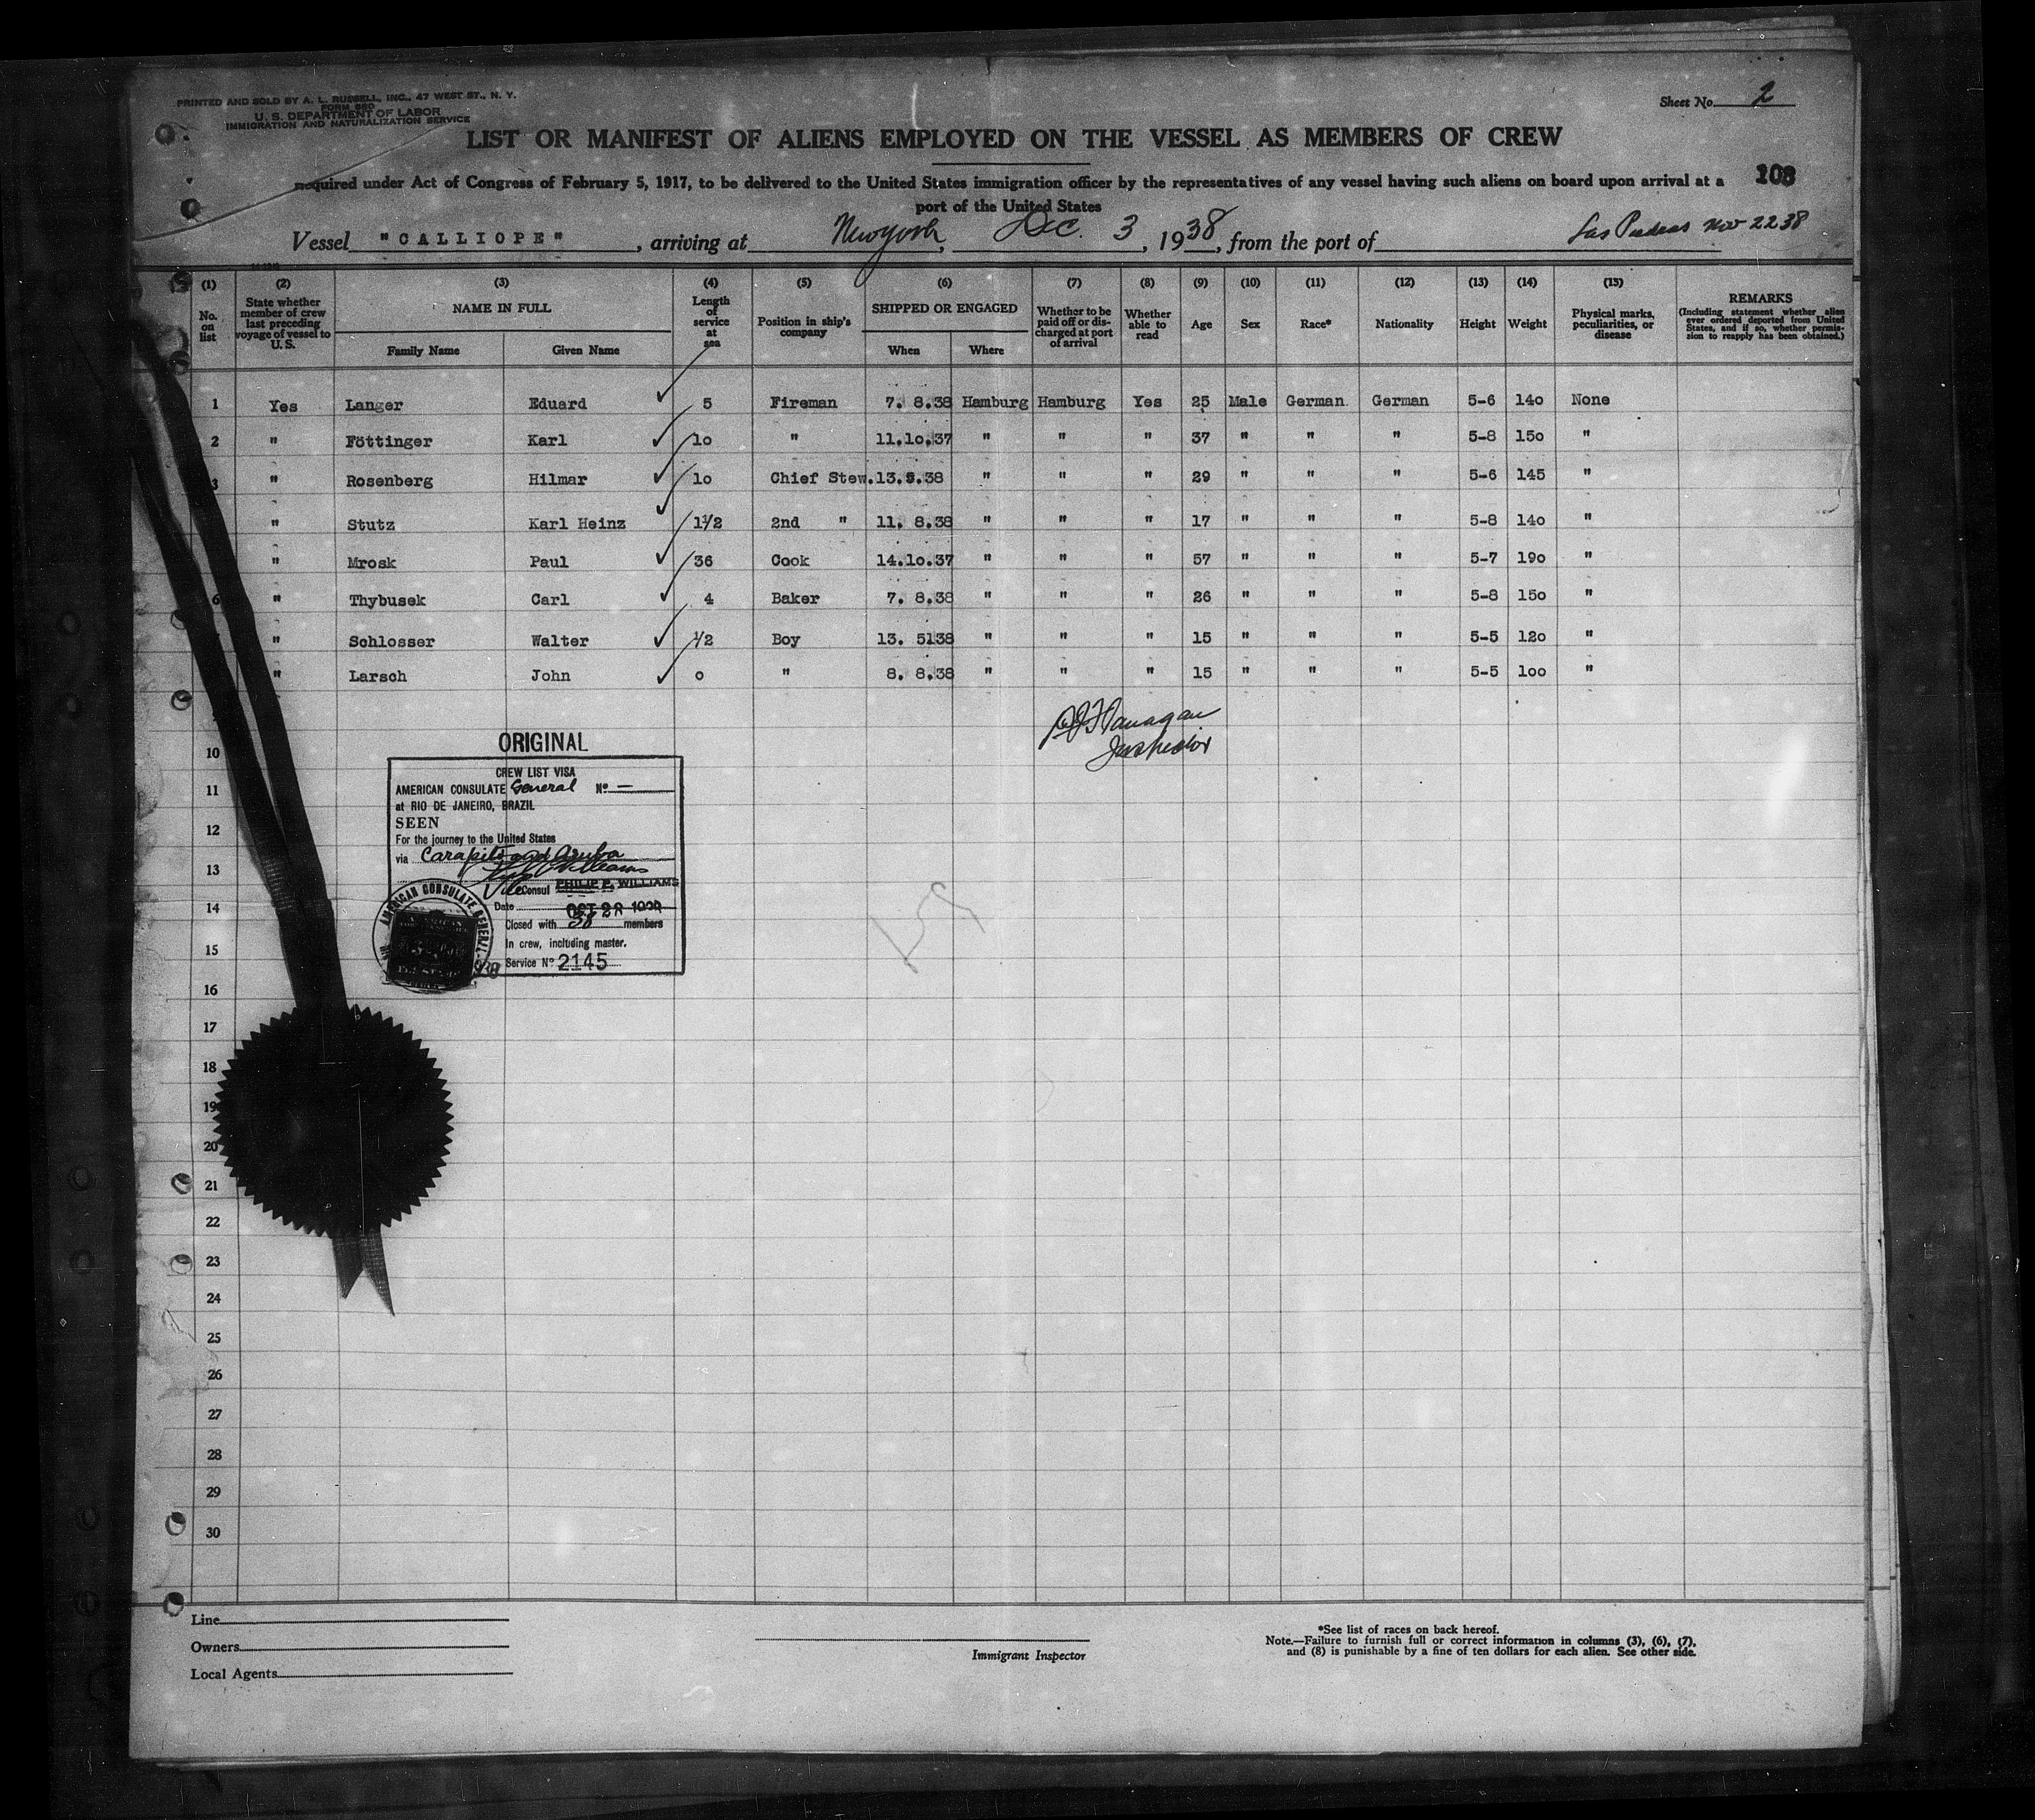 PRINTED AND SOLD BY A. L. RUSSELL, INC., 47 WEST ST., N. Y.
FORM 680
U. S. DEPARTMENT OF LABOR
IMMIGRATION AND NATURALIZATION SERVICE
Sheet No. 2
LIST OR MANIFEST OF ALIENS EMPLOYED ON THE VESSEL AS MEMBERS OF CREW
108
required under Act of Congress of February 5, 1917, to be delivered to the United States immigration officer by the representatives of any vessel having such aliens on board upon arrival at a
port of the United States
Vessel "CALLIOPE", arriving at New York, Dec. 3, 1938, from the port of Las Piedras Nov 22 38
(1) (2) (3) (4) (5) (6) (7) (8) (9) (10) (11) (12) (13) (14) (15)
No. on list
State whether member of crew last preceding voyage of vessel to U. S.
NAME IN FULL
Family Name Given Name
Length of service at sea
Position in ship's company
SHIPPED OR ENGAGED
When Where
Whether to be paid off or discharged at port of arrival
Whether able to read
Age
Sex
Race*
Nationality
Height
Weight
Physical marks, peculiarities, or disease
REMARKS
(Including statement whether alien ever ordered deported from United States, and if so, whether permission to reapply has been obtained.)
1 Yes Langer Eduard 5 Fireman 7. 8.38 Hamburg Hamburg Yes 25 Male German German 5-6 140 None
2 " Föttinger Karl 10 " 11.10.37 " " " 37 " " " 5-8 150 "
3 " Rosenberg Hilmar 10 Chief Stew. 13.5.38 " " " 29 " " " 5-6 145 "
" Stutz Karl Heinz 1½ 2nd " 11. 8.38 " " " 17 " " " 5-8 140 "
" Mrosk Paul 36 Cook 14.10.37 " " " 57 " " " 5-7 190 "
6 " Thybusek Carl 4 Baker 7. 8.38 " " " 26 " " " 5-8 150 "
" Schlosser Walter ½ Boy 13. 5138 " " " 15 " " " 5-5 120 "
" Larsch John 0 " 8. 8.38 " " " 15 " " " 5-5 100 "
Flanagan
Inspector
ORIGINAL
CREW LIST VISA
AMERICAN CONSULATE General No —
at RIO DE JANEIRO, BRAZIL
SEEN
For the journey to the United States
via Caripito and Aruba
Vice Consul PHILIP P. WILLIAMS
Date OCT 28 1938
Closed with 38 members
In crew, including master.
Service No 2145
AMERICAN CONSULATE GENERAL
10
11
12
13
14
15
16
17
18
19
20
21
22
23
24
25
26
27
28
29
30
Line
Owners
Local Agents
Immigrant Inspector
*See list of races on back hereof.
Note.—Failure to furnish full or correct information in columns (3), (6), (7),
and (8) is punishable by a fine of ten dollars for each alien. See other side.